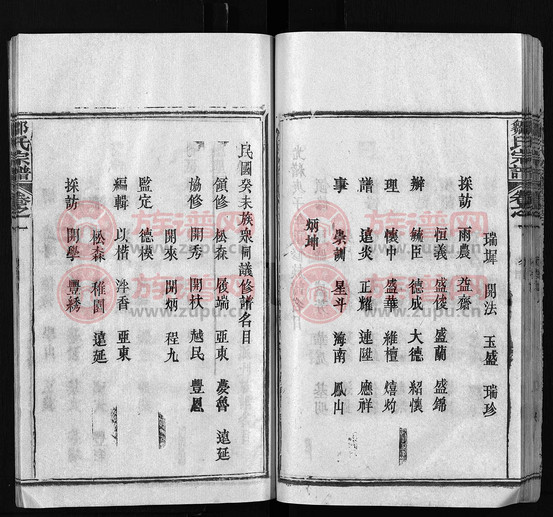 鄒氏宗譜
瑞墀 開法 玉盛 瑞珍
採訪 雨農 益齋
恆義 盛俊 盛蘭 盛錦
辦 輔臣 德成 大德 紹懷
理 懷中 盛華 維檀 熺灼
譜 遠炎 正耀 連陞 應祥
事 崇訓 星斗 海南 鳳山
炳坤
民國癸未族衆同議修譜名目
領修 松森 展端 亞東 慶魯 遠延
協修 開秀 開杕 越民 豐恩
開來 開炳 程九
監定 德模
編輯 以情 泮香 亞東
松森 稚園 遠延
採訪 開學 豐綉
鄒氏宗譜
族谱网
www.zupu.cn